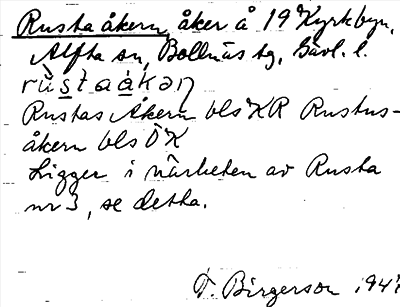 Rusta åkern, åker å 19 Kyrkbyn,
Alfta sn, Bollnäs tg, Gävl. l.
Rustas Åkern bls KR Rustus-
åkern bls ÖK
Ligger i närheten av Rusta
nr 3, se detta.
T. Birgerson